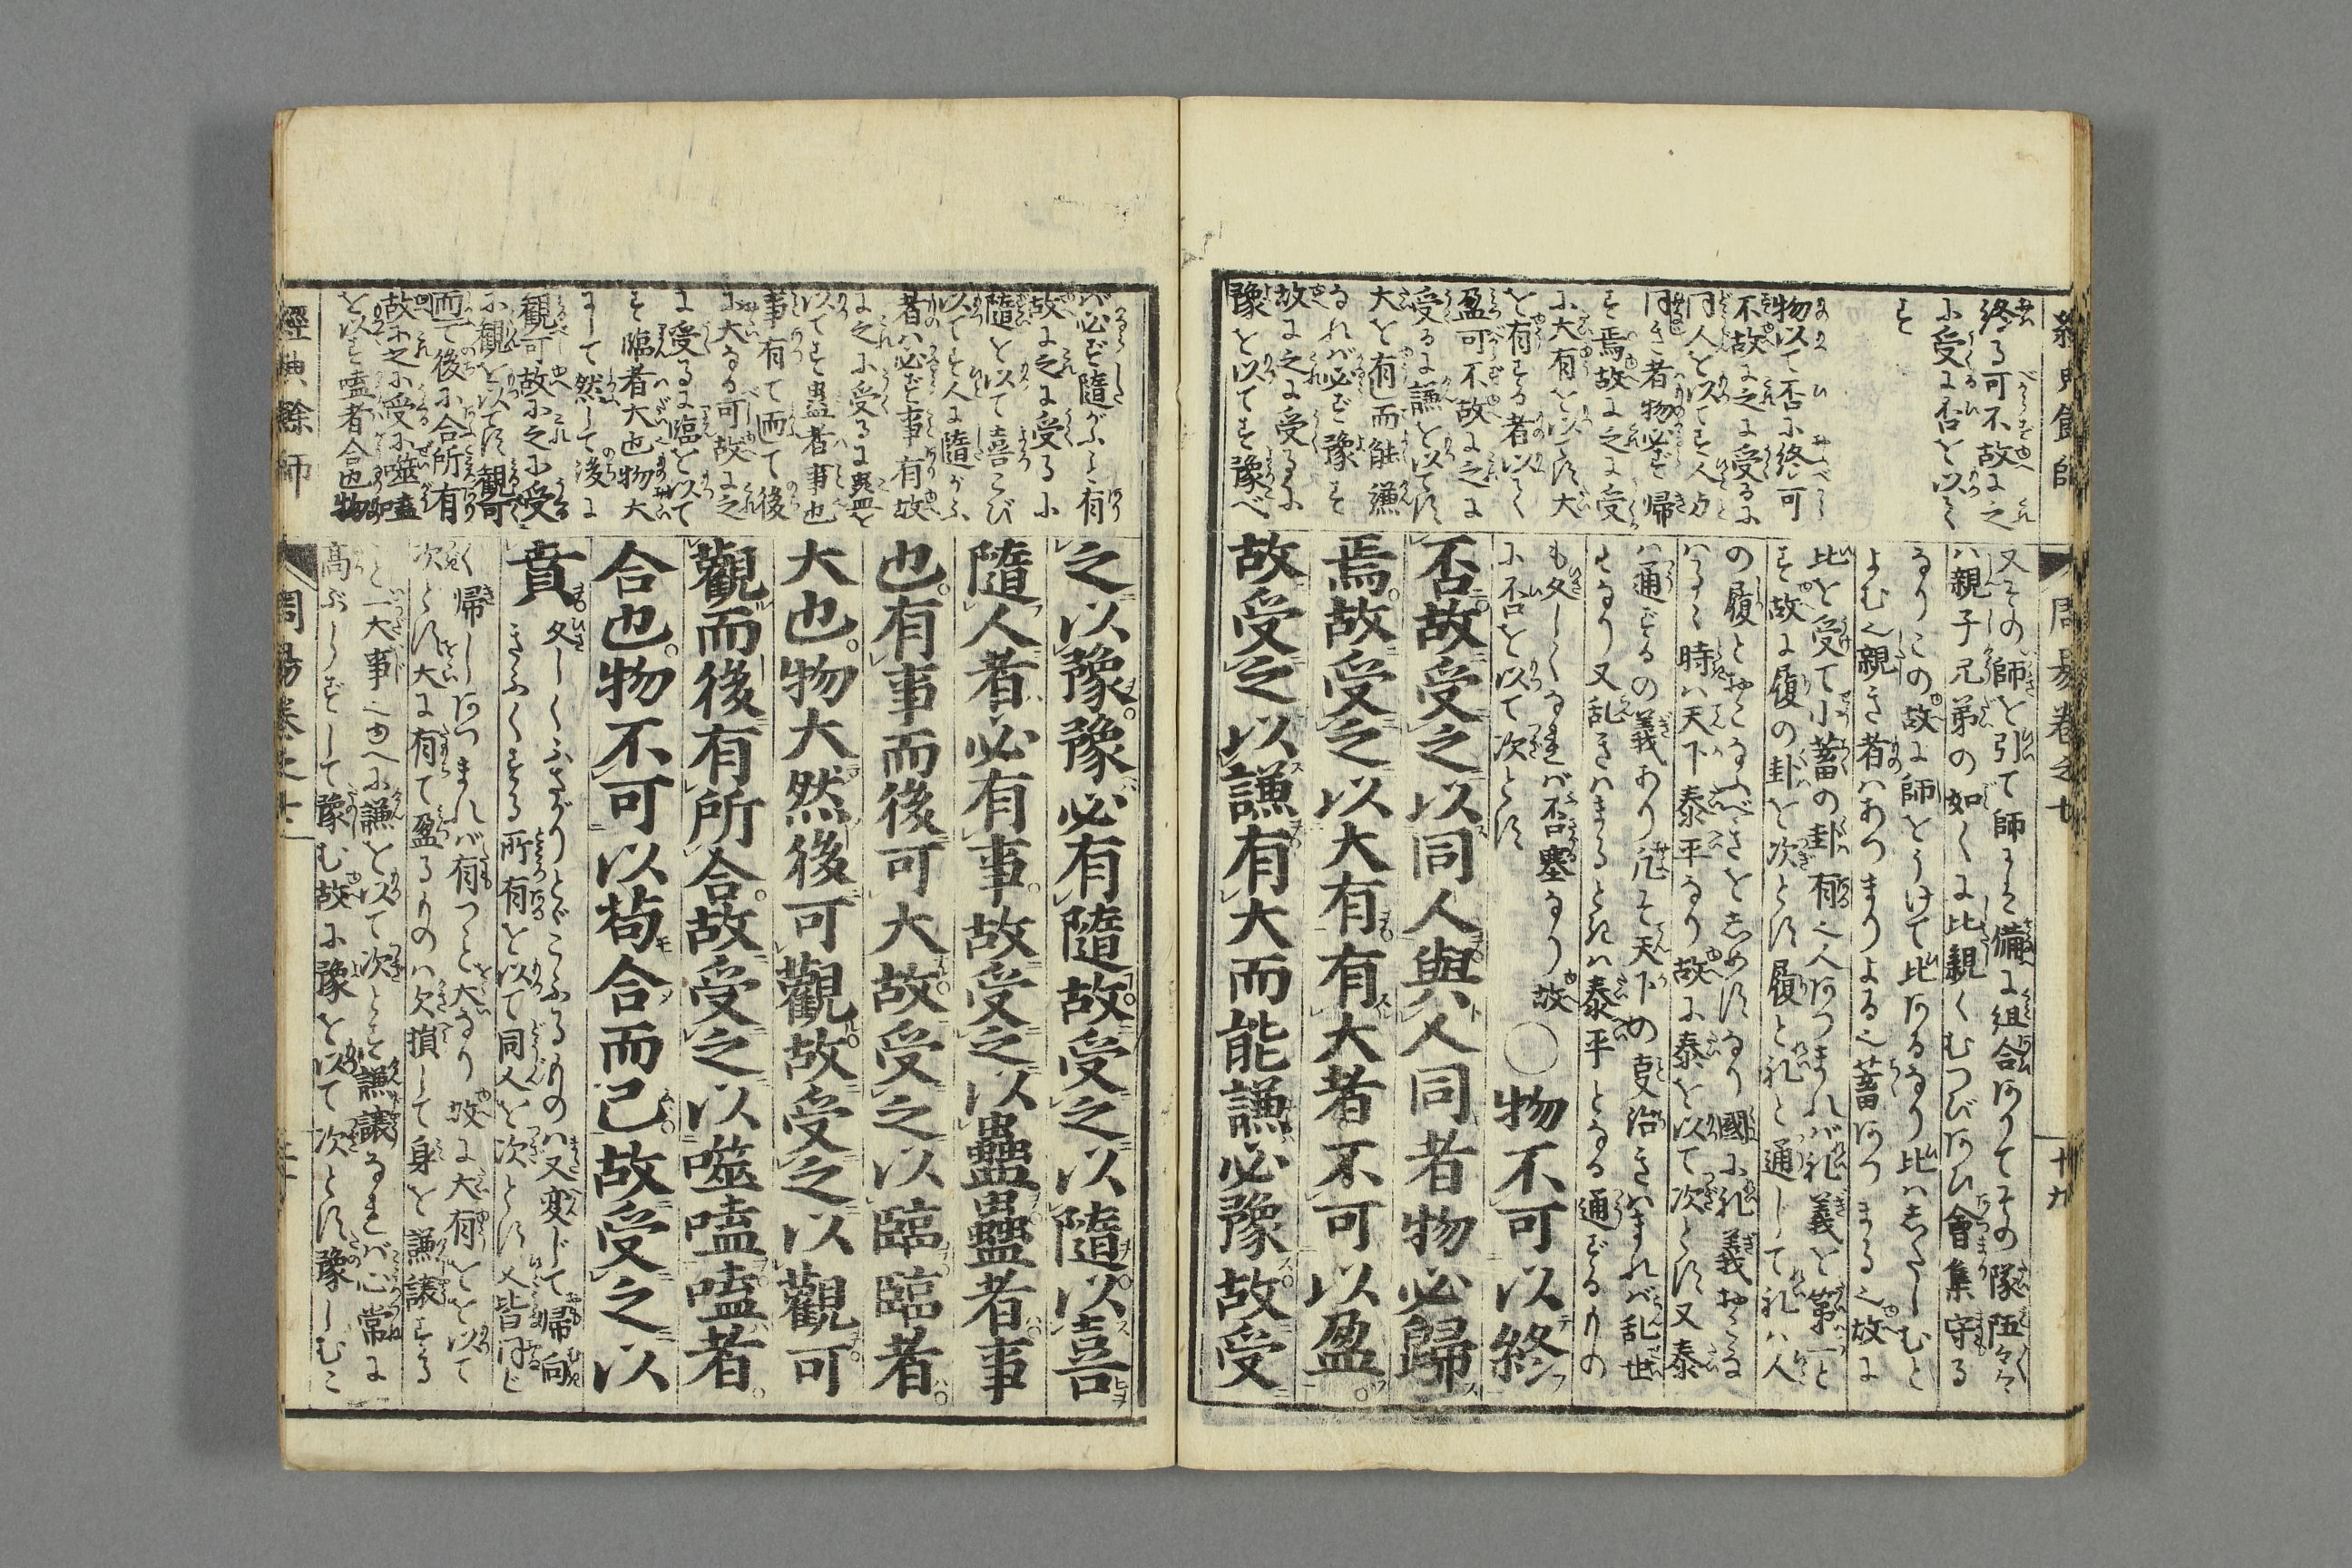 終る可不故に之
に受るに否を以て
す
物以て否に終可
不故に之に受るに
同人を以てす人与
同き者物必ず帰
す焉故に之に受
に大有を以てす大
を有する者以て
盈可不故に之に
受るに謙を以てす
大を有而能謙
なれば必ず豫す
故に之に受るに
豫を以てす豫べ
又その師を引て師は備に組合ありてその隊伍は
は親子兄弟の如くに比親くむつび會集守る
なりこの故に師をうけて比あるなり比はしたしむと
よむ親き者はあつまりよる之蓄あつまる之故に
比を受て小蓄の卦有之人あつまれば礼義を第一と
す故に履の卦を次とす履と礼と通じて礼は人
の履とおこなふべきをしめすなり國に礼義おこな
はるゝ時は天下泰平なり故に泰を以て次とす又泰
は通ずるの義あり凡そ天下の事治きはまれば乱世
となり又乱きはまるときは泰平となる通ずるもの
も久しくなれば否塞なり故
に否を以て次とす
○物不可以終
否故受之以同人與人同者物必歸
焉故受之以大有有大者不可以盈
故受之以謙有大而能謙必豫故受
周易卷之七
十九
ば必ず隨がふと有
故に之に受るに
隨を以て喜こび
以てす人に隨がふ
者は必ず事有故
に之に受るに蠱を
以てす蠱者事也
事有て而て後
に大なる可故に之
に受るに臨を以て
す臨者大也物大
にして然して後に
觀可故に之に受
に觀を以てす觀可
而て後に合所有
故に之に受に噬嗑
を以す嗑者合也物
之以豫豫必有隨故受之以隨以喜
隨人者必有事故受之以蠱蠱者事
也有事而後可大故受之以臨臨者
大也物大然後可觀故受之以觀可
觀而後有所合故受之以噬嗑嗑者
合也物不可以苟合而已故受之以
賁
久しくふさがりとゞこふるものは又変じて帰向
きふくする所有を以て同人を次とす人皆同じ
く帰しあつまれば有つと大なり故に大有を以て
次とす大に有て盈るものは欠損して身を謙譲する
こと一大事之ゆへに謙を以て次とす謙譲なれば心常に
高ぶらずして豫む故に豫を以て次とす豫しむこ
經典餘師
周易卷之七